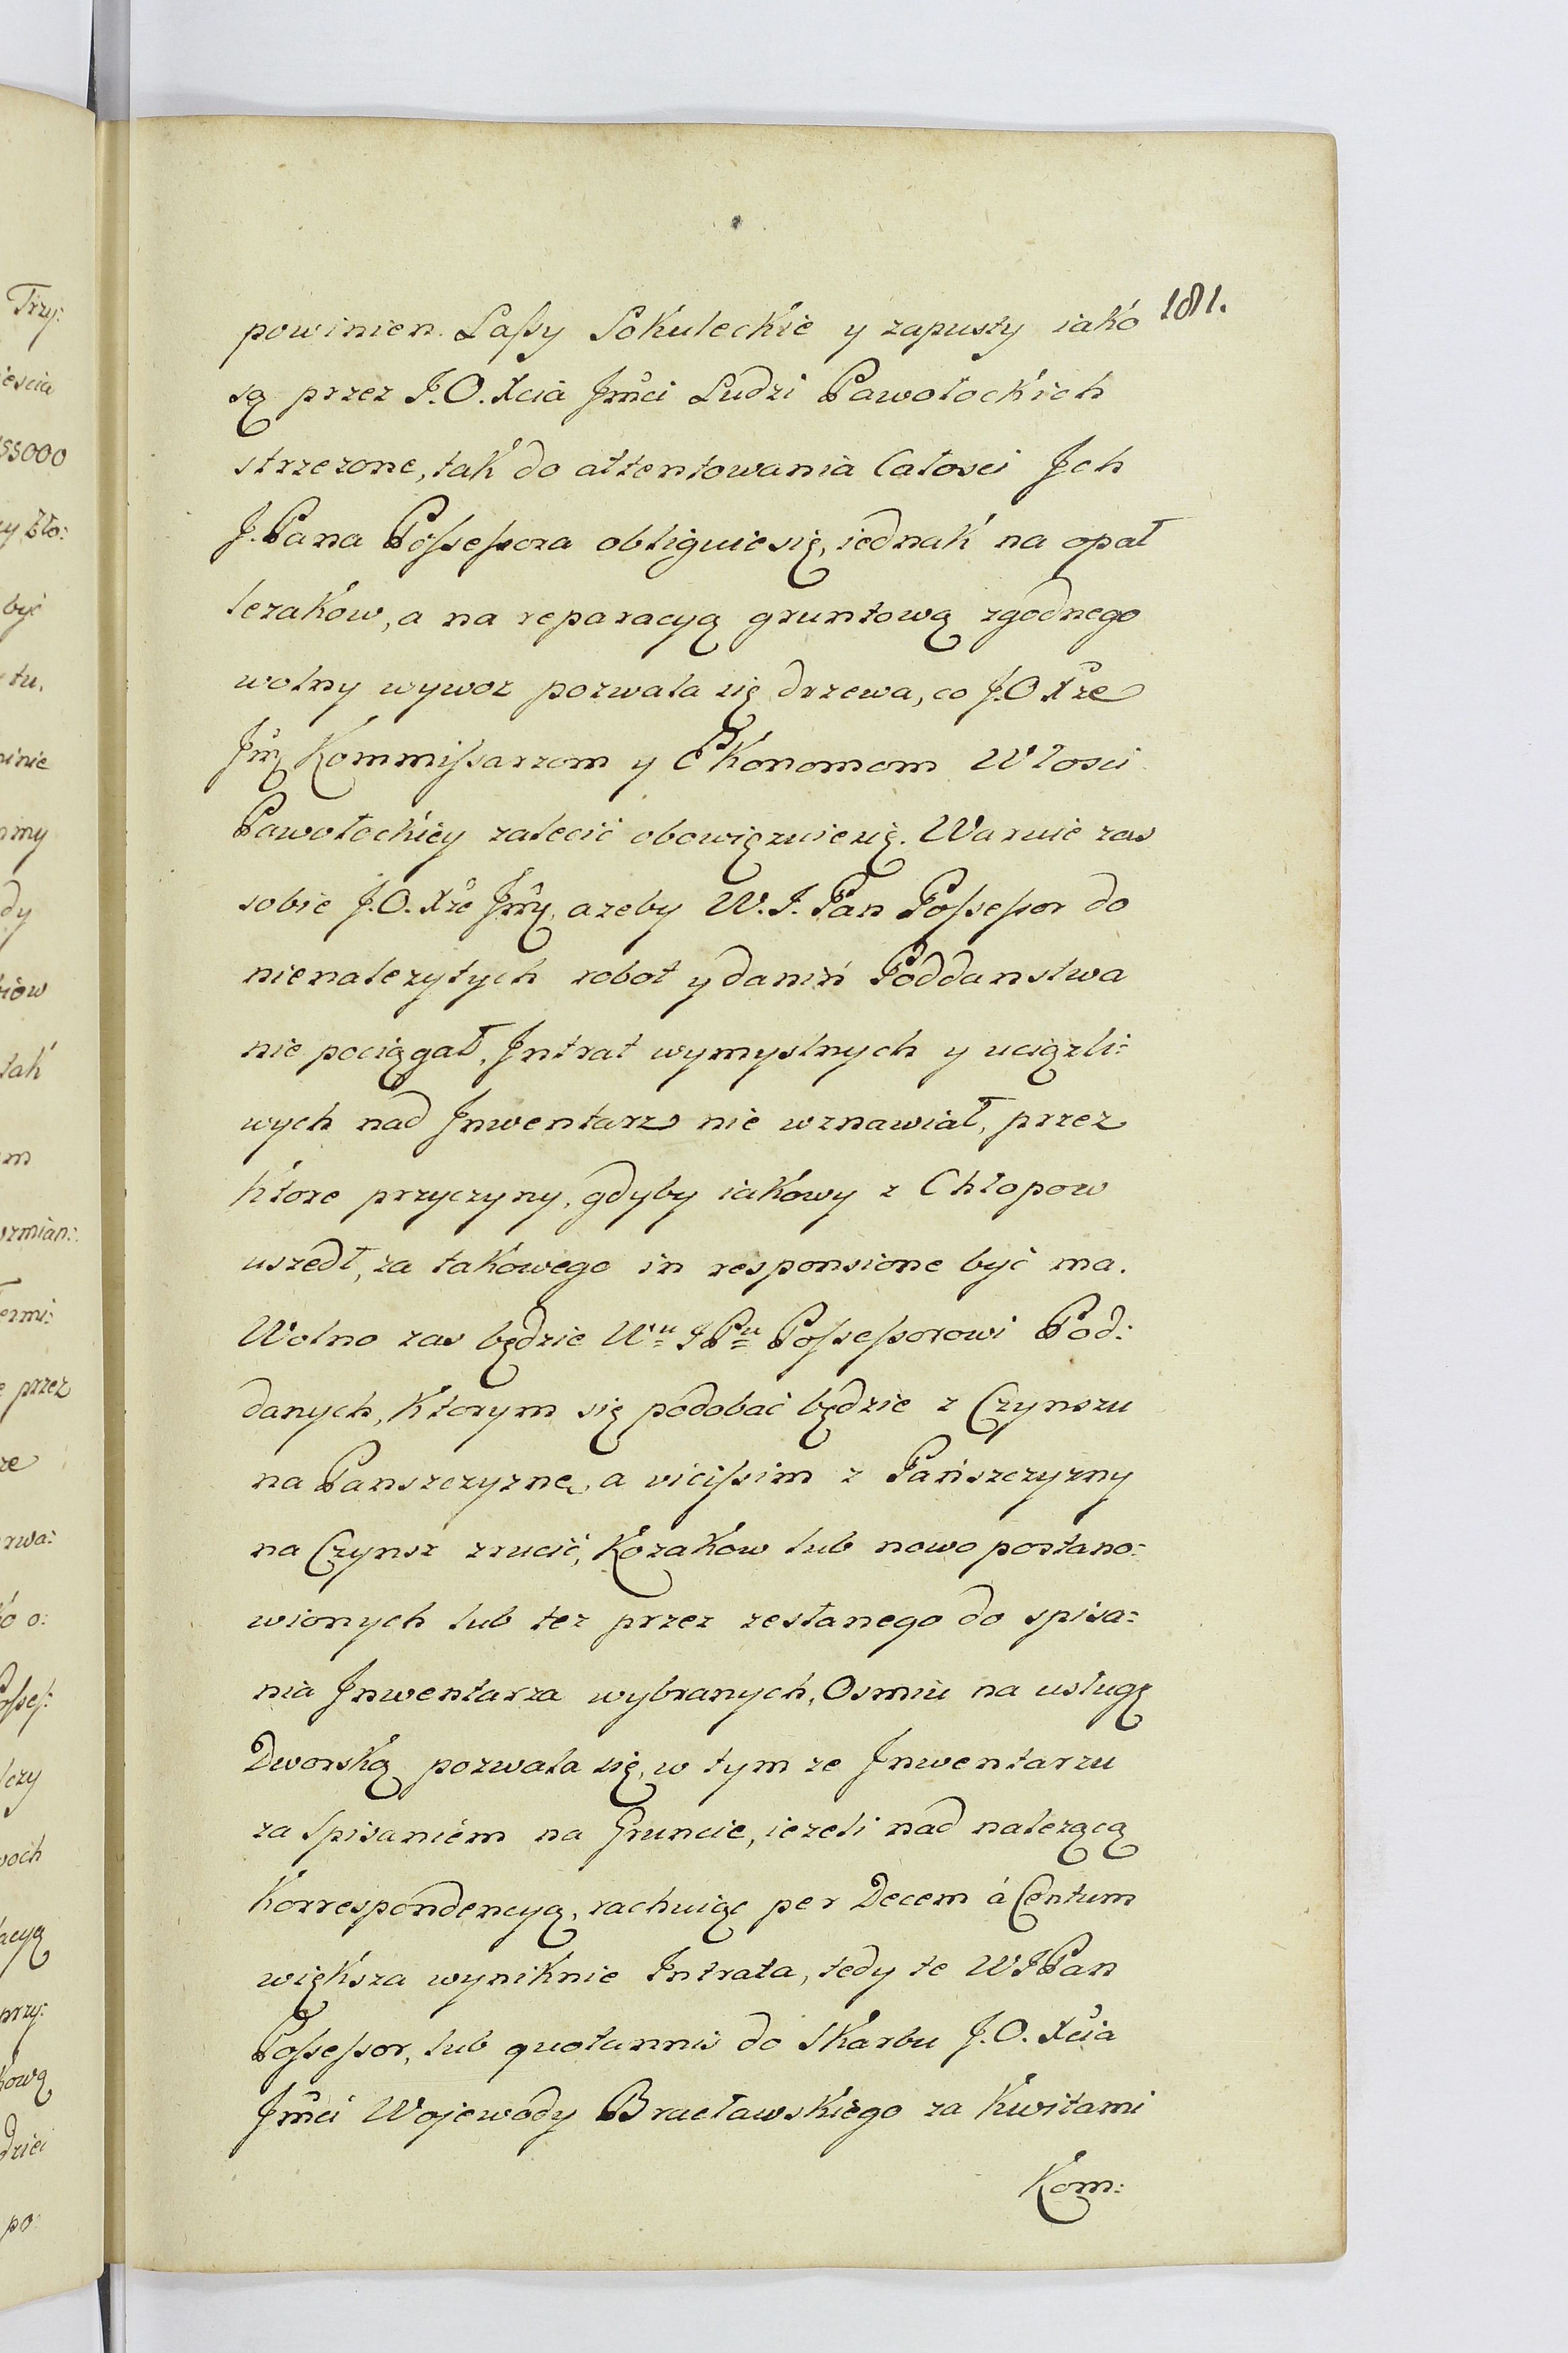 181.
powinien. Lassy Sokuleckie y zapusty iako
są przez J.O. Xcia Jmci Ludzi Pawołockich
strzezone, tak do attentowania Całosci Jch
J. Pana Possessora obliguie się, iednak na opał
lezakow, a na reparacyą gruntową zgodnego
wolny wywoz pozwala się drzewa, co J.O Xże
Jmć Kommissarzom y Ekonomom Włosci
Pawołockiey zalecić obowięzuie się. Waruie zas
sobie J.O. Xże Jmć, azeby W. J. Pan Possessor do
nienalezytych robot y daniń Poddanstwa
nie pociągał, Jntrat wymyslnych y uciązli:
wych nad Jnwentarz nie wznawiał, przez
ktore przyczyny, gdyby iakowy z Chłopow
uszedł, za takowego in responsione być ma.
Wolno zas będzie Wu JPu Possessorowi Pod:
danych, Ktorym się podobać będzie z Czynszu
na Panszczyznę, a vicissim z Pańszczyzny
na Czynsz zrucić, Kozakow lub nowo postano:
wionych lub tez przez zesłanego do spisa:
nia Jnwentarza wybranych, Osmiu na usługę
Dworską pozwala się, w tym ze Jnwentarzu
za spisaniem na Gruncie, iezeli nad nalezącą
Korrespondencyą, rachuiąc per Decem á Centum
większa wyniknie Jntrata, tedy te WJPan
Possessor, lub quotannis do Skarbu J.O. Xcia
Jmci Wojewody Bracławskiego za Kwitami
Kom:
Trzy:
55000
być
tu.
dy
tak
przez
rwa:
po: